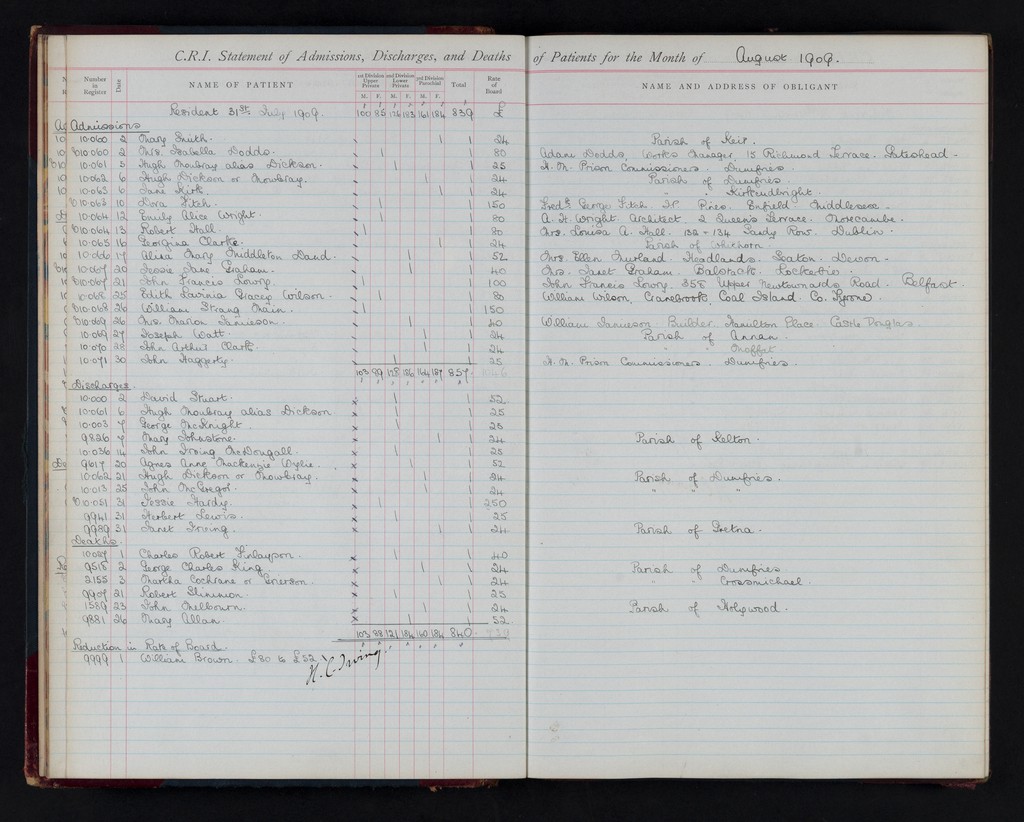 C.R.I. Statement of Admissions, Discharges, and Deaths of Patients for the Month of August 1909.
Number in Register Date NAME OF PATIENT 1st Division Upper Private M. F. 2nd Division Lower Private M. F. 2nd Division Parochial M. F. Total Rate of Board NAME AND ADDRESS OF OBLIGANT
Resident 31st July 1909. 100 85 126 183 161 184 839 £
Admissions
10.060 2 Mary Smith. 24 Parish of Keir.
10.060 2 Mrs. Isabella Dodds. 80 Adam Dodds, Works Manager, 15 Richmond Terrace. Gateshead.
10.061 3 Hugh Mowbray alias Dickson. 25 H.M. Prison Commissioners. Dumfries.
10.062 6 Hugh Dickson or Mowbray. 24 Parish of Dumfries.
10.063 6 Jane Kirk. 24 " " Kirkcudbright.
10.063 10 Dora Fitch. 150 Fredk. George Fitch. J.P. Pines. Enfield. Middlesex.
10.064 12 Emily Alice Wright. 80 A. H. Wright. Architect, 2 Queen's Terrace. Morecambe.
10.064 13 Robert Hall. 80 Mrs. Louisa A. Hall. 132-134 Sandy Row. Dublin.
10.065 16 Georgina Clarke. 24 Parish of Whithorn.
10.066 17 Alina Mary Middleton Daud. 52 Mrs. Ellen Hurland. Headlands. Seaton. Devon.
10.067 20 Jessie Jane Graham. 40 Mrs. Janet Graham. Balstack. Lockerbie.
10.067 21 John Francis Lowry. 100 John Francis Lowry. 358 Upper Newtownards Road. Belfast.
10.068 25 Edith Lavinia Gracey Wilson. 80 William Wilson, Cranebrook, Coal Island. Co. Tyrone.
10.068 26 William Strang Main. 150
10.069 26 Mrs. Marion Jamieson. 40 William Jamieson. Builder. Hamilton Place. Castle Douglas.
10.069 27 Joseph Watt. 24 Parish of Annan.
10.070 28 John Arthur Clark. 24 " " Moffat
10.071 30 John Haggerty. 25 H.M. Prison Commissioners. Dumfries.
103 89 128 186 164 187 857
Discharges.
10.000 2 David Stuart. 52
10.061 6 Hugh Mowbray alias Dickson. 25
10.003 7 George McKnight. 25
9826 7 Mary Johnstone. 24 Parish of Kelton.
10.036 14 John Irving McDougall. 25
9617 20 Agnes Anne Mackenzie Wylie. 52
10.062 21 Hugh Dickson or Mowbray. 24 Parish of Dumfries.
10.013 25 John McGregor. 24 " " "
10.051 31 Jessie Hardy. 250
9941 31 Herbert Lewis. 25
9989 31 Janet Irving. 24 Parish of Gretna.
Deaths.
10.057 1 Charles Robert Finlayson. 40
9515 2 George Charles King. 24 Parish of Dumfries.
2155 3 Martha Cochrane or Emerson. 24 " " Crossmichael.
9907 21 Robert Shimmon. 25
1589 23 John Melbourn. 24 Parish of Holywood.
9881 26 Mary Allan. 52
103 88 121 184 160 184 840.
Reduction in Rate of Board.
9999 1 William Brown. £80 to £52
H. C. Irving